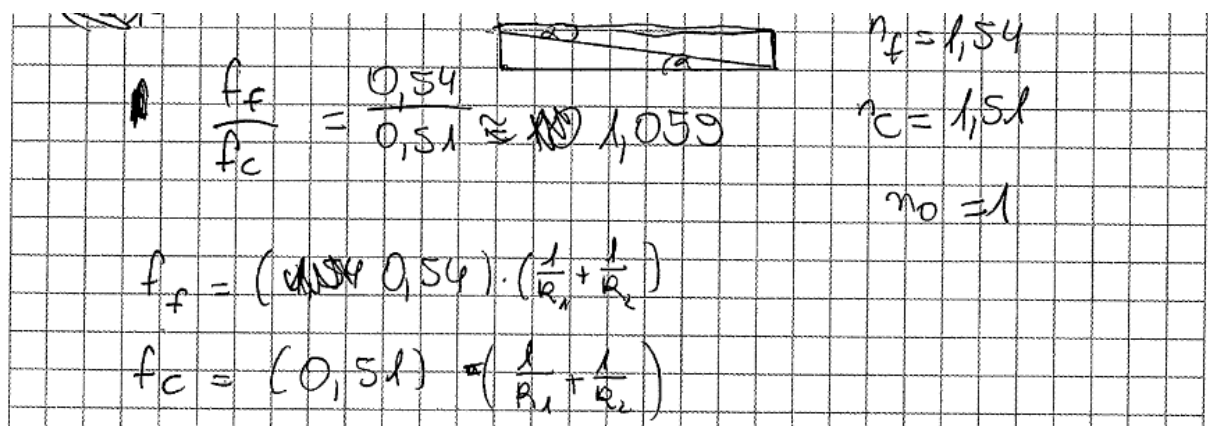 n_f = 1,54
f_f / f_c = 0,54 / 0,51 ≈ 1,059
n_c = 1,51
n_0 = 1
f_f = ( 0,54 ) · ( 1/R_1 + 1/R_2 )
f_c = ( 0,51 ) · ( 1/R_1 + 1/R_2 )